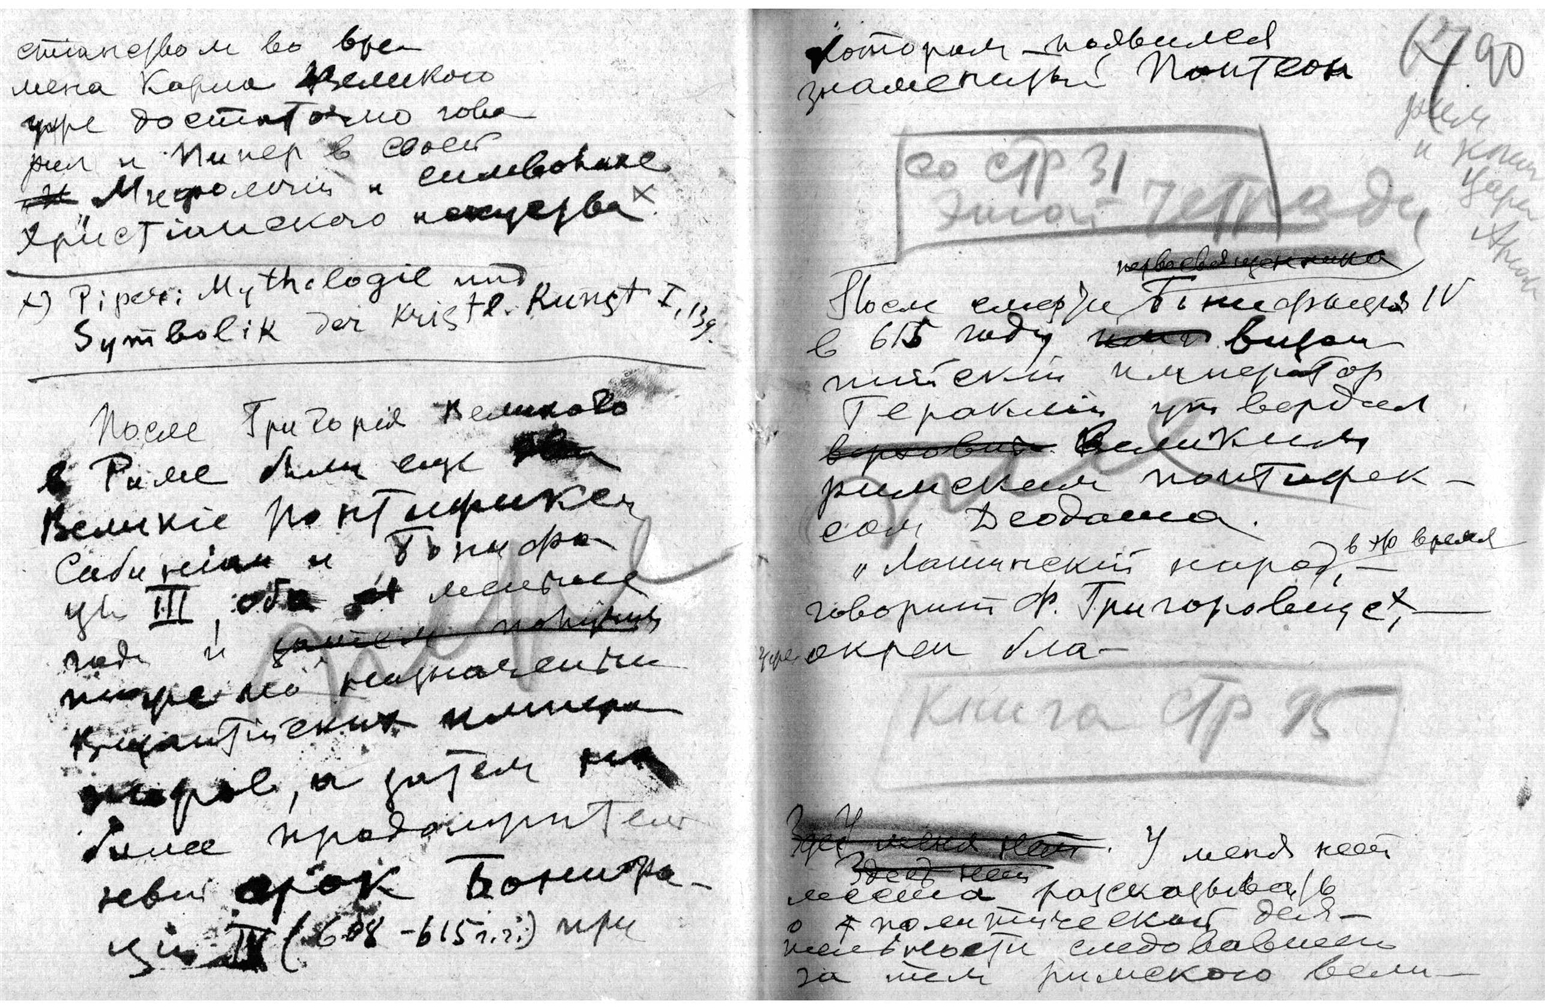 станством во вре-
мена Карла Великого
уже достаточно гово
рил и Пипер в своей
Мифологии и символике
Христіанского искусства x.
x) Piper: Mythologie und
Symbolik der Kristl. Kunst I, 139.
После Григорія Великого
в Риме были еще
Великіе Понтификсы
Сабиніан и Бонифа-
цій III, оба меньше
года и
тоже по назначенію
Византійских импера
торов, а затем на
более продолжитель
ный срок Бонифа-
цій IV (608-615 г.г.) при
котором появился
знаменитый Пантеон
90
Рим
и
со СТР 31
этой тетради
первосвященника
После смерти Бонифація IV
в 615 году визан-
тийскій император
Гераклій утвердил
Великим
римским понтифек-
сом Деодата.
„Латинскій народ, в то время
говорит Ф. Григоровиус x, —
уже окреп бла-
Книга СТР 95
У меня нет. У меня нет
Здесь нет
места рассказывать
о политической дея-
тельности следовавшего
за тем римского вели-